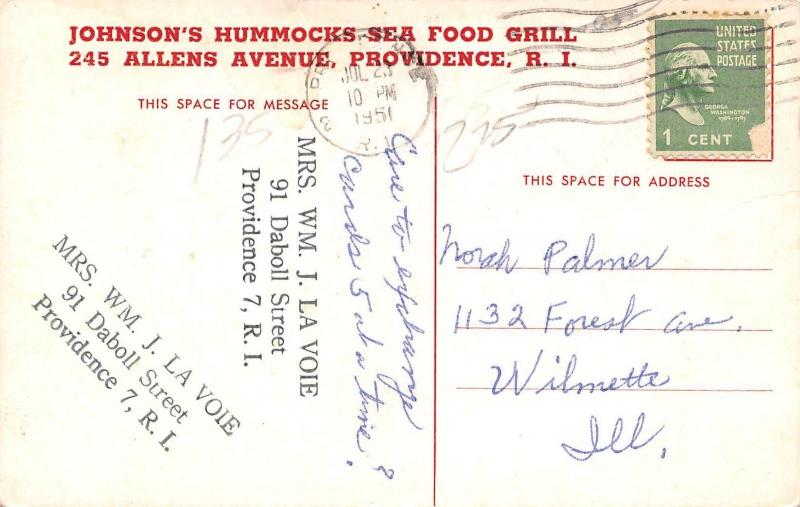 JOHNSON'S HUMMOCKS SEA FOOD GRILL
245 ALLENS AVENUE, PROVIDENCE, R. I.
THIS SPACE FOR MESSAGE
135
JUL 23
10 PM
1951
R. I.
275
UNITED
STATES
POSTAGE
GEORGE
WASHINGTON
1789-1797
1 CENT
THIS SPACE FOR ADDRESS
Care to exchange
cards 5 at a time?
MRS. WM. J. LA VOIE
91 Daboll Street
Providence 7, R. I.
MRS. WM. J. LA VOIE
91 Daboll Street
Providence 7, R. I.
Norah Palmer
1132 Forest Ave.
Wilmette
Ill.